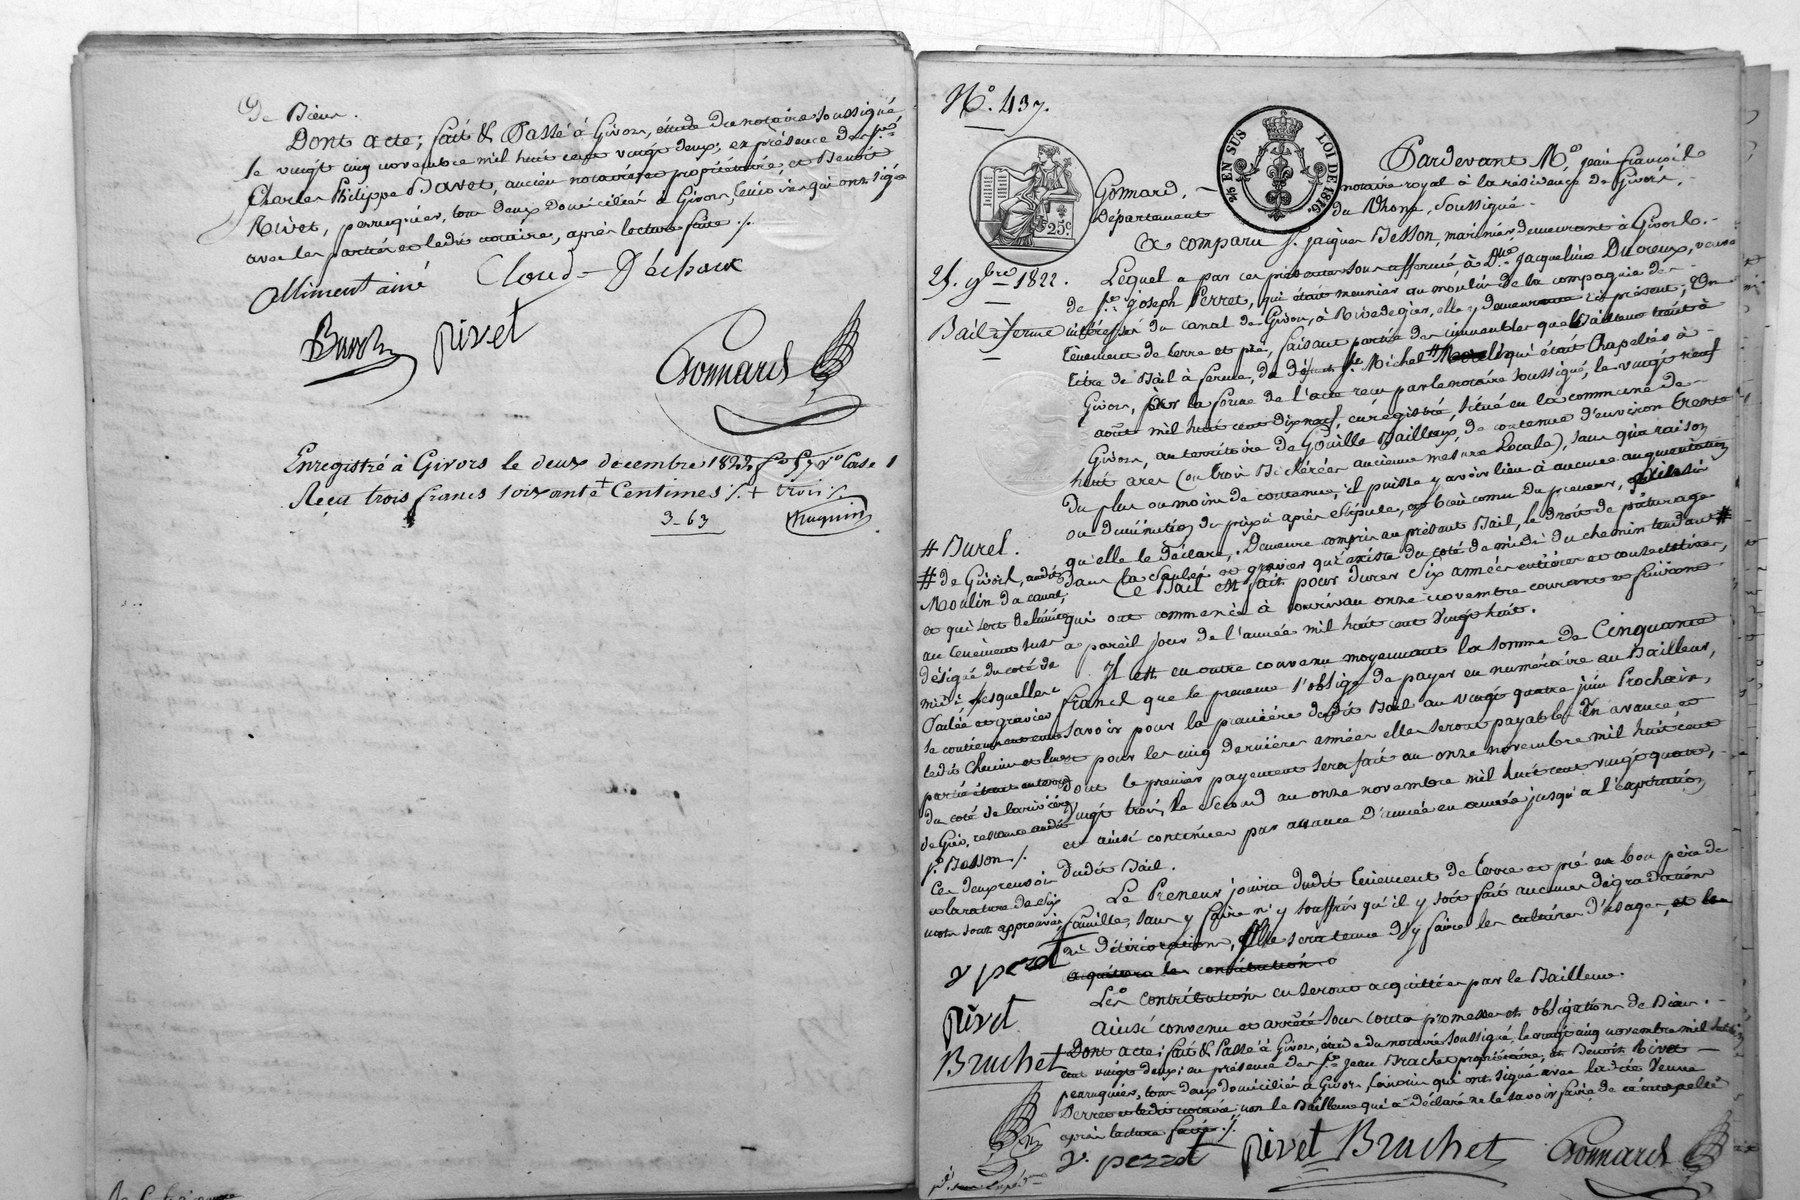 de Bien.
Dont acte; fait & Passé à Givors, étude du notaire soussigné
le vingt cinq novembre mil huit cent vingt deux; en présence de Srs
Charles Philippe Bavet, ancien notaire et propriétaire, et Benoit
Rivet, perruquier, tous deux domiciliés à Givors, témoins qui ont signé
avec les parties et ledit notaire, après lecture faite ./.
Allimentainé Cloud Déchaux
Rivet
Gonnard
Enregistré à Givors le deux decembre 1822 fo 57 Vo Case 1
Reçu trois francs soixante + Centimes ./. + trois ./.
3-63
No. 437.
25 EN SUS LOI DE 1816.
25c
Pardevant Me jean françois
Gonnard, notaire royal à la résidence de Givors,
Département du Rhone, soussigné.
A comparu Sr jacques Besson, marinier, demeurant à Givors.
25. 9bre 1822.
Lequel a par ces présentes sous affermé, à Dlle jacqueline Ducreux, veuve
de Sr joseph Perret, qui était meunier au moulin de la compagnie des
Bail à ferme
intéressés du canal de Givors, à Rivedegier, elle y demeurante ici présent; Un
tènement de terre et pré, faisant partie des immeubles que le Bailleur tient à
titre de Bail à ferme, de défunt Sr Michel # qui était Chapelier à
Givors, par la forme de l'acte reçu par le notaire soussigné, le vingt neuf
août mil huit cent dix neuf, enregistré, situé en la commune de
Givors, au territoire de Gouille Bailleux, de contenue d'environ trente
huit ares (ou trois Bichérées ancienne mesure Locale), sans qu'à raison
du plus ou moins de contenue, il puisse y avoir lieu à aucune augmentation
ou diminution du prix ci après stipulé, bien connu du preneur,
# Burel.
qu'elle le déclare. Demeure compris au présent Bail, le droit de pâturage
# de Givors, audit
dans la Saulée et gravier qu'existe du coté de midi du chemin tendant #
Moulin du canal,
Ce Bail est fait pour durer six années entières et consécutives,
et qui sert de limite
qui ont commencé à courir au onze novembre courant et finiront
au tènement sus
a pareil jour de l'année mil huit cent vingt huit.
désigné du coté de
Il est en outre convenu moyennant la somme de Cinquante
midi lesquelles
francs que le preneur s'oblige de payer en numéraire au Bailleur,
Saulée et gravier
savoir pour la première dudit Bail au vingt quatre juin Prochain,
se contiennent entre
et pour les cinq dernières années elles seront payables En avance et
ledit Chemin et
dont le premier payement sera fait au onze novembre mil huit cent
partie étant au
vingt trois, le second au onze novembre mil huit cent vingt quatre,
du coté de la rivière
et ainsi continuer par avance d'année en année jusqu'à l'expiration
de Gier, restante audit
Sr Besson ./.
dudit Bail.
Ces deux renvois
Le Preneur jouira dudit tènement de terre et pré en bon père de
et la rature de six
famille, sans y faire n'y souffrir qu'il y soit fait aucunes dégradations
mots sont approuvés
ni détériorations, Elle sera tenue d'y faire les cultures d'usages, et les
v perret
acquittera les contributions
Les contributions en seront acquittées par le Bailleur.
Rivet
Ainsi convenu et arrêté sous toutes promesses et obligations de Bien.
Bruchet
Dont acte; fait & Passé à Givors, étude du notaire soussigné, le vingt cinq novembre mil huit
cent vingt deux; en présence de Srs Jean Brachet propriétaire, et Benoit Rivet
perruquier, tous deux domiciliés à Givors, témoins qui ont signé avec ladite veuve
Perret et ledit notaire, non le Bailleur qui a déclaré ne le savoir faire de ce interpellé
après lecture faite ./.
v. perret Rivet Bruchet Gonnard